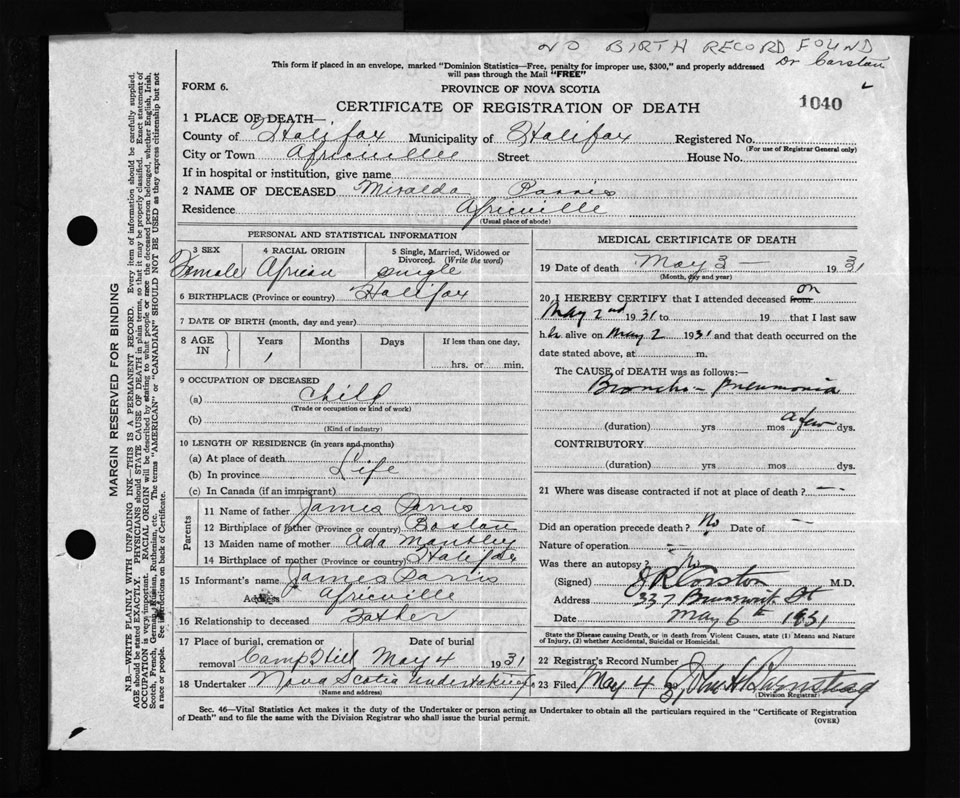 NO BIRTH RECORD FOUND
Dr Corston
This form if placed in an envelope, marked "Dominion Statistics—Free, penalty for improper use, $300," and properly addressed
will pass through the Mail "FREE"
FORM 6.
PROVINCE OF NOVA SCOTIA
CERTIFICATE OF REGISTRATION OF DEATH
1040
1 PLACE OF DEATH—
County of Halifax Municipality of Halifax Registered No.
(For use of Registrar General only)
City or Town Africville Street House No.
If in hospital or institution, give name
2 NAME OF DECEASED Miralda Parris
Residence Africville
(Usual place of abode)
PERSONAL AND STATISTICAL INFORMATION
3 SEX 4 RACIAL ORIGIN 5 Single, Married, Widowed or
Divorced. (Write the word)
Female African single
6 BIRTHPLACE (Province or country) Halifax
7 DATE OF BIRTH (month, day and year)
8 AGE IN Years Months Days If less than one day,
1 hrs. or min.
9 OCCUPATION OF DECEASED
(a) Child
(Trade or occupation or kind of work)
(b)
(Kind of industry)
10 LENGTH OF RESIDENCE (in years and months)
(a) At place of death
(b) In province Life
(c) In Canada (if an immigrant)
Parents
11 Name of father James Parris
12 Birthplace of father (Province or country) Boston
13 Maiden name of mother Ada Mantley
14 Birthplace of mother (Province or country) Halifax
15 Informant's name James Parris
Address Africville
16 Relationship to deceased Father
17 Place of burial, cremation or Date of burial
removal Camp Hill May 4 1931
18 Undertaker Nova Scotia Undertaking
(Name and address)
MEDICAL CERTIFICATE OF DEATH
19 Date of death May 3 — 1931
(Month, day and year)
20 I HEREBY CERTIFY that I attended deceased from on
May 2nd 1931 to 19 that I last saw
h alive on May 2 1931 and that death occurred on the
date stated above, at m.
The CAUSE of DEATH was as follows:—
Broncho-Pneumonia
(duration) yrs mos a few dys.
CONTRIBUTORY
(duration) yrs mos dys.
21 Where was disease contracted if not at place of death? —
Did an operation precede death? No Date of —
Nature of operation —
Was there an autopsy? No
(Signed) J R Corston M.D.
Address 337 Brunswick St
Date May 6th 1931
State the Disease causing Death, or in death from Violent Causes, state (1) Means and Nature
of Injury, (2) whether Accidental, Suicidal or Homicidal.
22 Registrar's Record Number
23 Filed May 4 31
(Division Registrar)
Sec. 46—Vital Statistics Act makes it the duty of the Undertaker or person acting as Undertaker to obtain all the particulars required in the "Certificate of Registration
of Death" and to file the same with the Division Registrar who shall issue the burial permit.
(OVER)
MARGIN RESERVED FOR BINDING
N.B.—WRITE PLAINLY WITH UNFADING INK—THIS IS A PERMANENT RECORD. Every item of information should be carefully supplied.
AGE should be stated EXACTLY. PHYSICIANS should STATE CAUSE OF DEATH in plain terms, so that it may be properly classified. Exact statement of
OCCUPATION is very important. RACIAL ORIGIN will be described by stating to what people or race the deceased person belonged, whether English, Irish,
Scotch, French, German, Russian, Ruthenian, etc. The terms "AMERICAN" or "CANADIAN" SHOULD NOT BE USED as they express citizenship but not
a race or people. See instructions on back of Certificate.